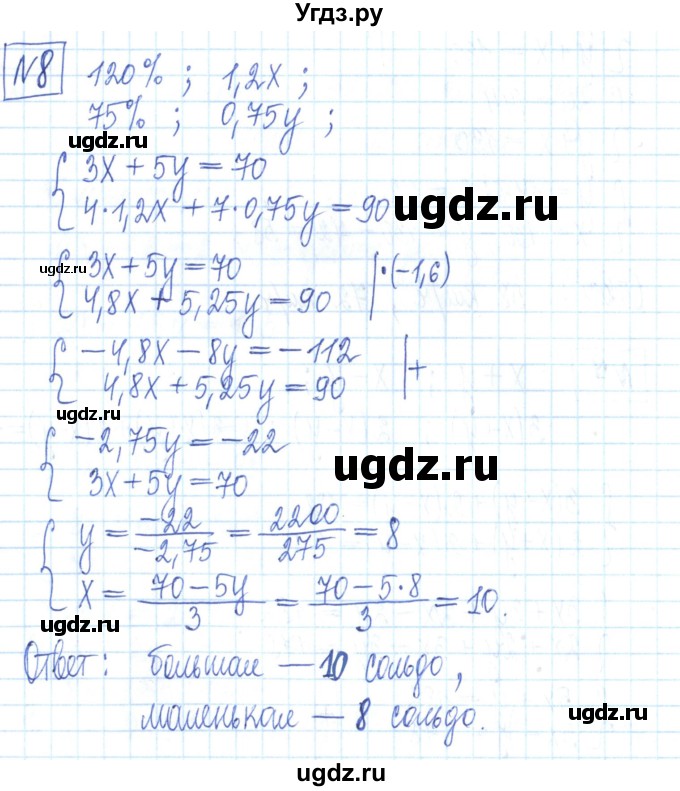 Угдз.ру
№8 120% ; 1,2x ;
75% ; 0,75y ;
ugdz.ru
3x + 5y = 70
4·1,2x + 7·0,75y = 90
ugdz.ru
ugdz.ru
ugdz.ru 3x + 5y = 70 | ·(-1,6)
4,8x + 5,25y = 90
ugdz.ru
-4,8x - 8y = -112
4,8x + 5,25y = 90 | +
ugdz.ru
-2,75y = -22
3x + 5y = 70
ugdz.ru
y = -22/-2,75 = 2200/275 = 8
ugdz.ru
x = (70-5y)/3 = (70-5·8)/3 = 10.
ugdz.ru
Ответ: большая — 10 сольдо,
маленькая — 8 сольдо.
ugdz.ru
ugdz.ru